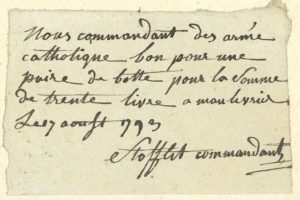 Nous commandant des armée
catholique bon pour une
paire de botte pour la somme
de trente livre a maulevrier
Le 17 aoust 1793
Stofflet commandant